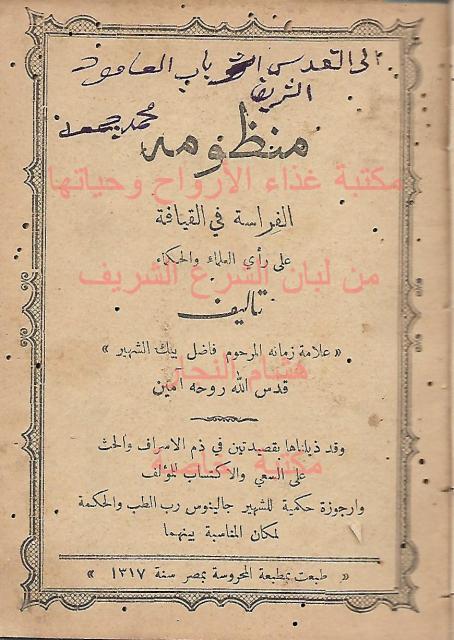 الى القدس باب العامود
الشريف
محمد جمعه
منظومه
مكتبة غذاء الأرواح وحياتها
الفراسة في القيافة
على رأي العلماء والحكماء
من لبان الشرع الشريف
تأليف
« علامة زمانه المرحوم فاضل بيك الشهير »
هشام النجار
قدس الله روحه آمين
وقد ذيلناها بقصيدتين في ذم الاسراف والحث
مكتبة خاصة
على السعي والاكتساب للمؤلف
وارجوزة حكمية للشهير جالينوس رب الطب والحكمة
لمكان المناسبة بينهما
« طبعت بمطبعة المحروسة بمصر سنة ١٣١٧ »